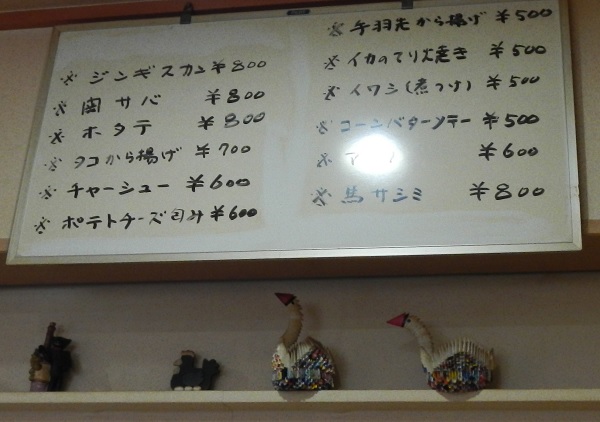 ※ ジンギスカン ¥800
※ 関サバ ¥800
※ ホタテ ¥800
※ タコから揚げ ¥700
※ チャーシュー ¥600
※ ポテトチーズ包み ¥600
※ 手羽先から揚げ ¥500
※ イカのてり焼き ¥500
※ イワシ(煮つけ) ¥500
※ コーンバターソテー ¥500
※ ¥600
※ 馬サシミ ¥800